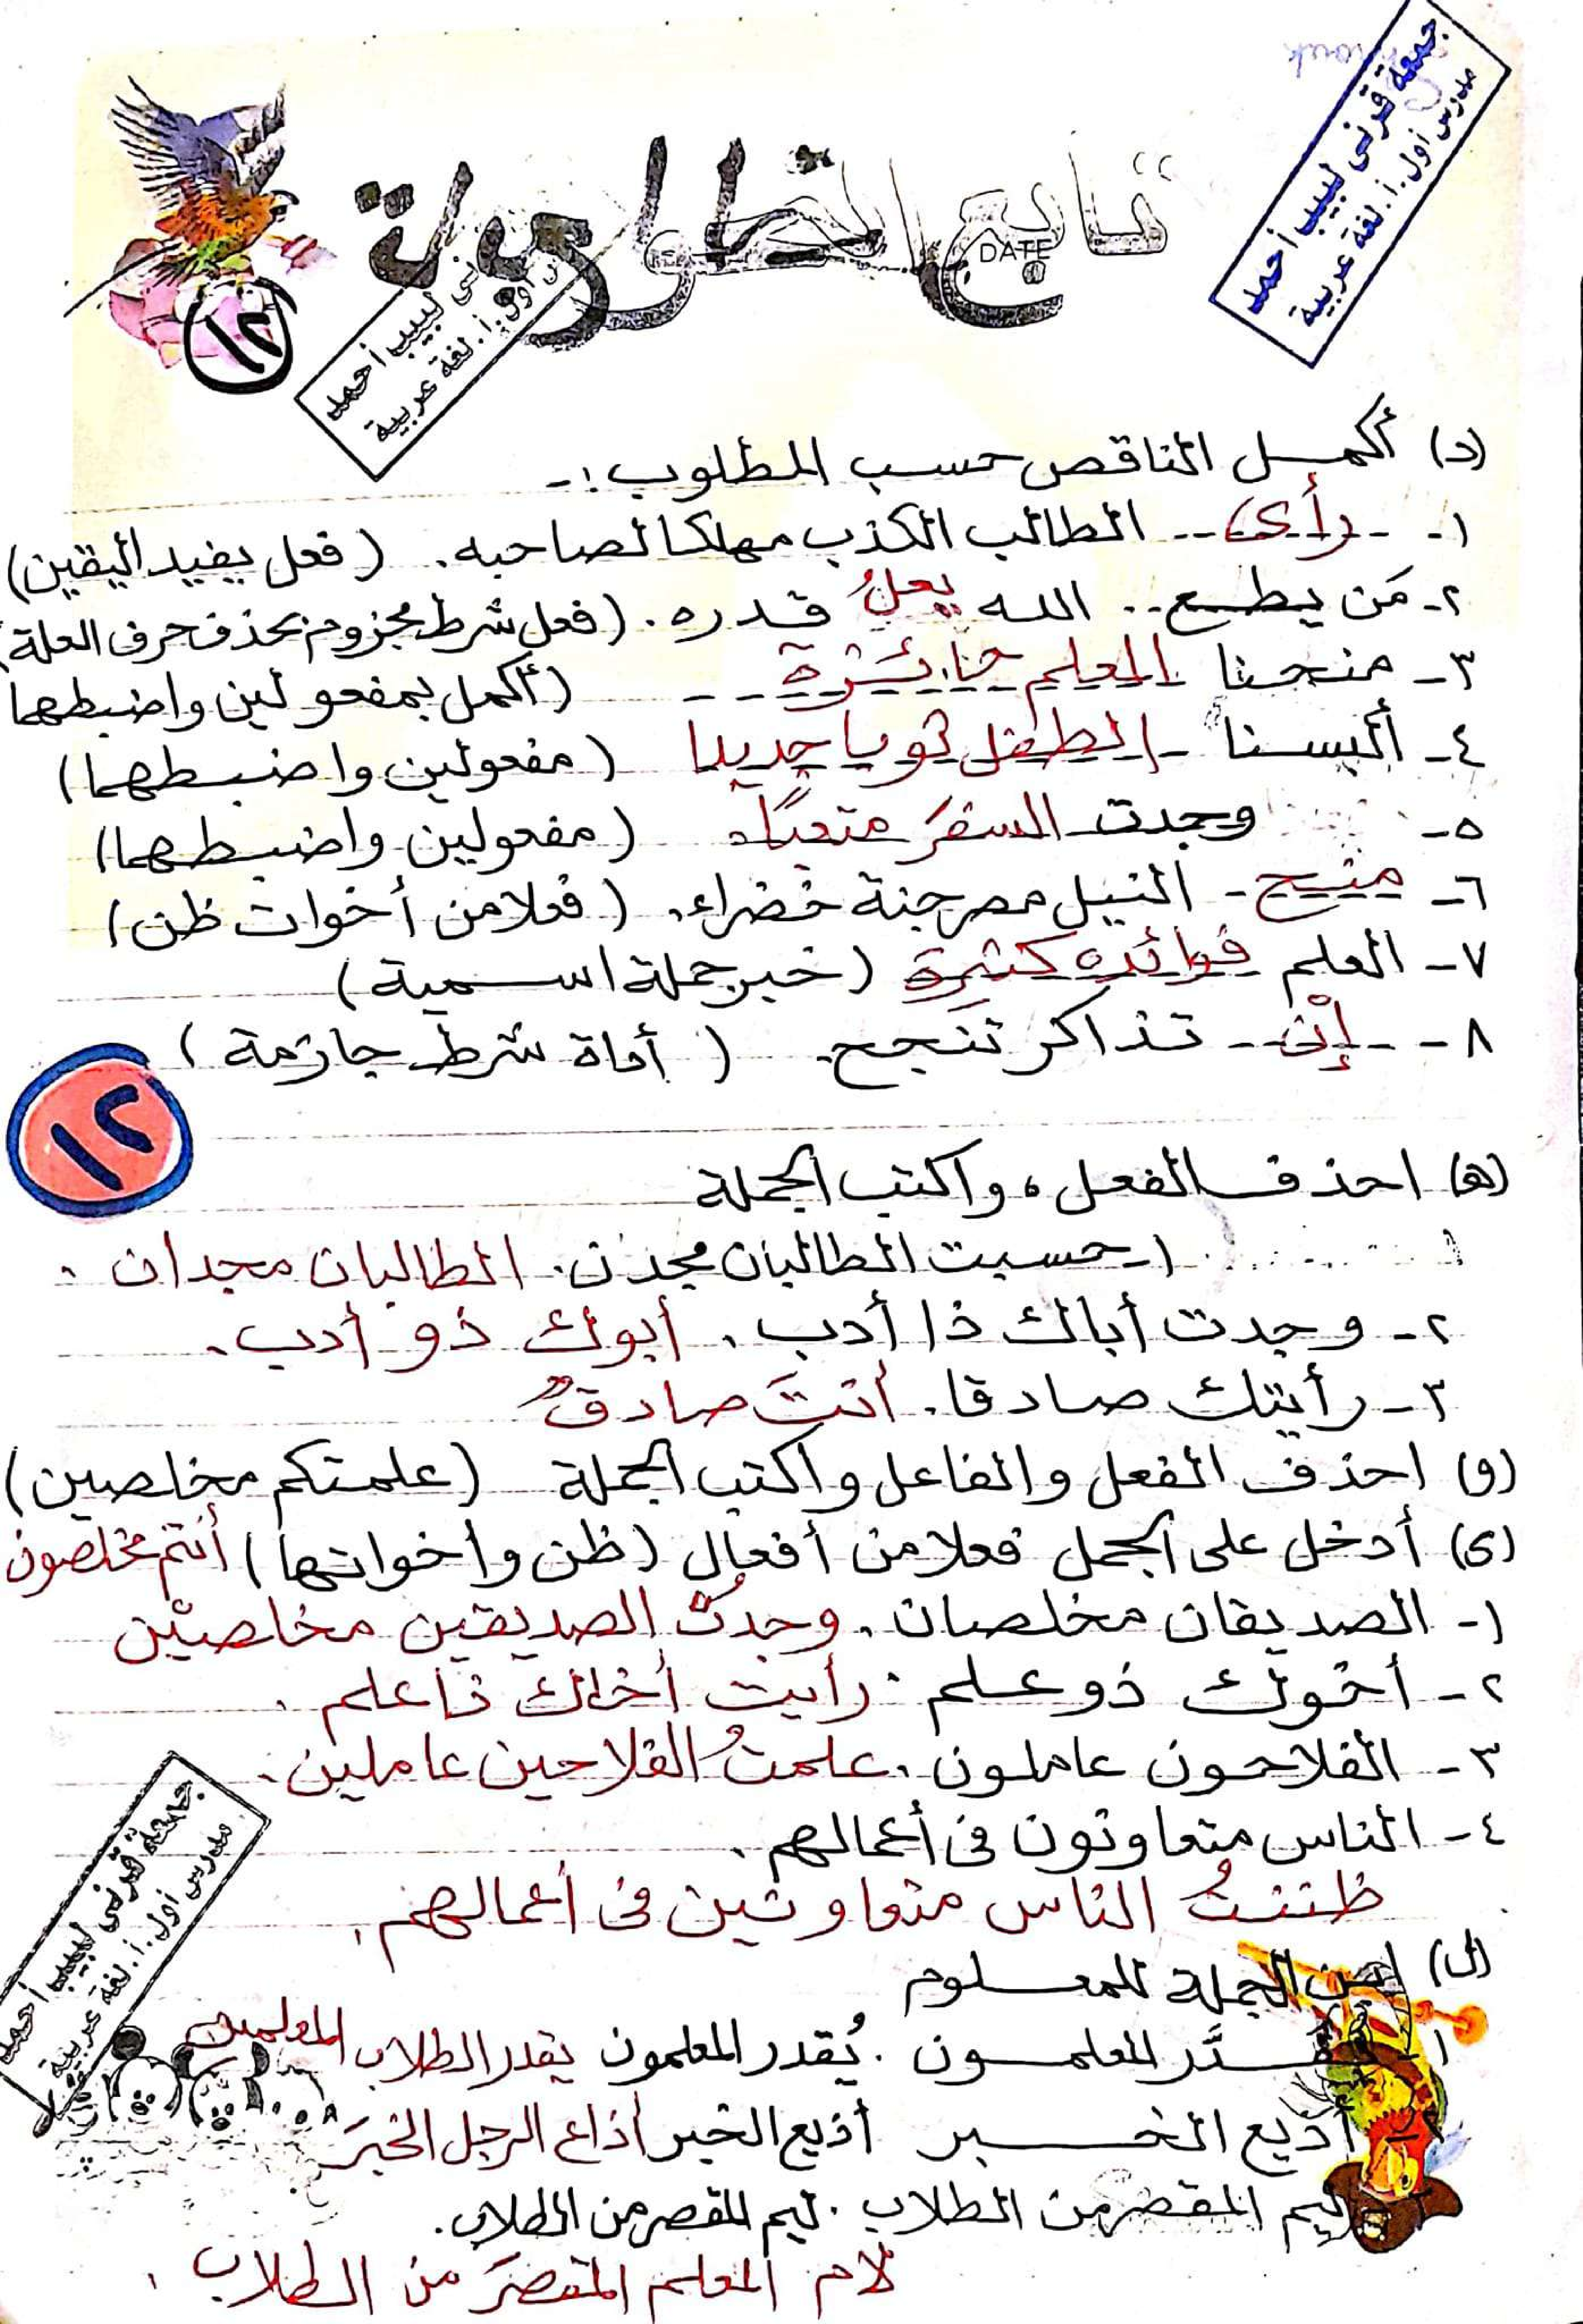 جمعة قرنى لبيب أحمد
مدرس أول.أ. لغة عربية
تابع الخلاوية
DATE
نى لبيب أحمد
س أول.أ. لغة عربية
١٢
(د) أكمل الناقص حسب المطلوب:-
١- رأى الطالب الكذب مهلكا لصاحبه. (فعل يفيد اليقين)
٢- مَن يطع.. الله يعلُ قدره. (فعل شرط مجزوم بحذف حرف العلة)
٣- منحنا المعلم جائزة (أكمل بمفعولين واضبطهما
٤- ألبسنا الطفل ثوبا جديدا (مفعولين واضبطهما)
٥- وجدت السفرَ متعبًا (مفعولين واضبطهما)
٦- منح النيل مصر جنة خضراء. (فعلا من أخوات ظن)
٧- العلم فوائده كثيرة (خبر جملة اسمية)
٨- إنْ تذاكر تنجح. (أداة شرط جازمة)
١٢
(ه) احذف الفعل، واكتب الجملة
١- حسبت الطالبان مجدن. الطالبان مجدان.
٢- وجدت أباك ذا أدب. أبوك ذو أدب.
٣- رأيتك صادقا. أنتَ صادقٌ
(و) احذف الفعل والفاعل واكتب الجملة (علمتكم مخلصين)
(ى) أدخل على الجمل فعلا من أفعال (ظن وأخواتها) أنتم مخلصون
١- الصديقان مخلصان. وجدتُ الصديقين مخلصيْن
٢- أخوك ذو علم. رأيت أخاك ذا علم.
٣- الفلاحون عاملون. علمتُ الفلاحين عاملين.
٤- الناس متعاونون فى أعمالهم.
ظننتُ الناس متعاونين فى أعمالهم.
(ل) ابن الجملة للمعلوم
١- قُدَّر المعلمون. يُقدر المعلمون يقدر الطلاب المعلمين
٢- أذيع الخبر أذيع الخبر أذاع الرجل الخبرَ
ليم المقصر من الطلاب. ليم المقصر من الطلاب.
لام المعلم المقصرَ من الطلاب.
جمعة قرنى لبيب أحمد
مدرس أول.أ. لغة عربية